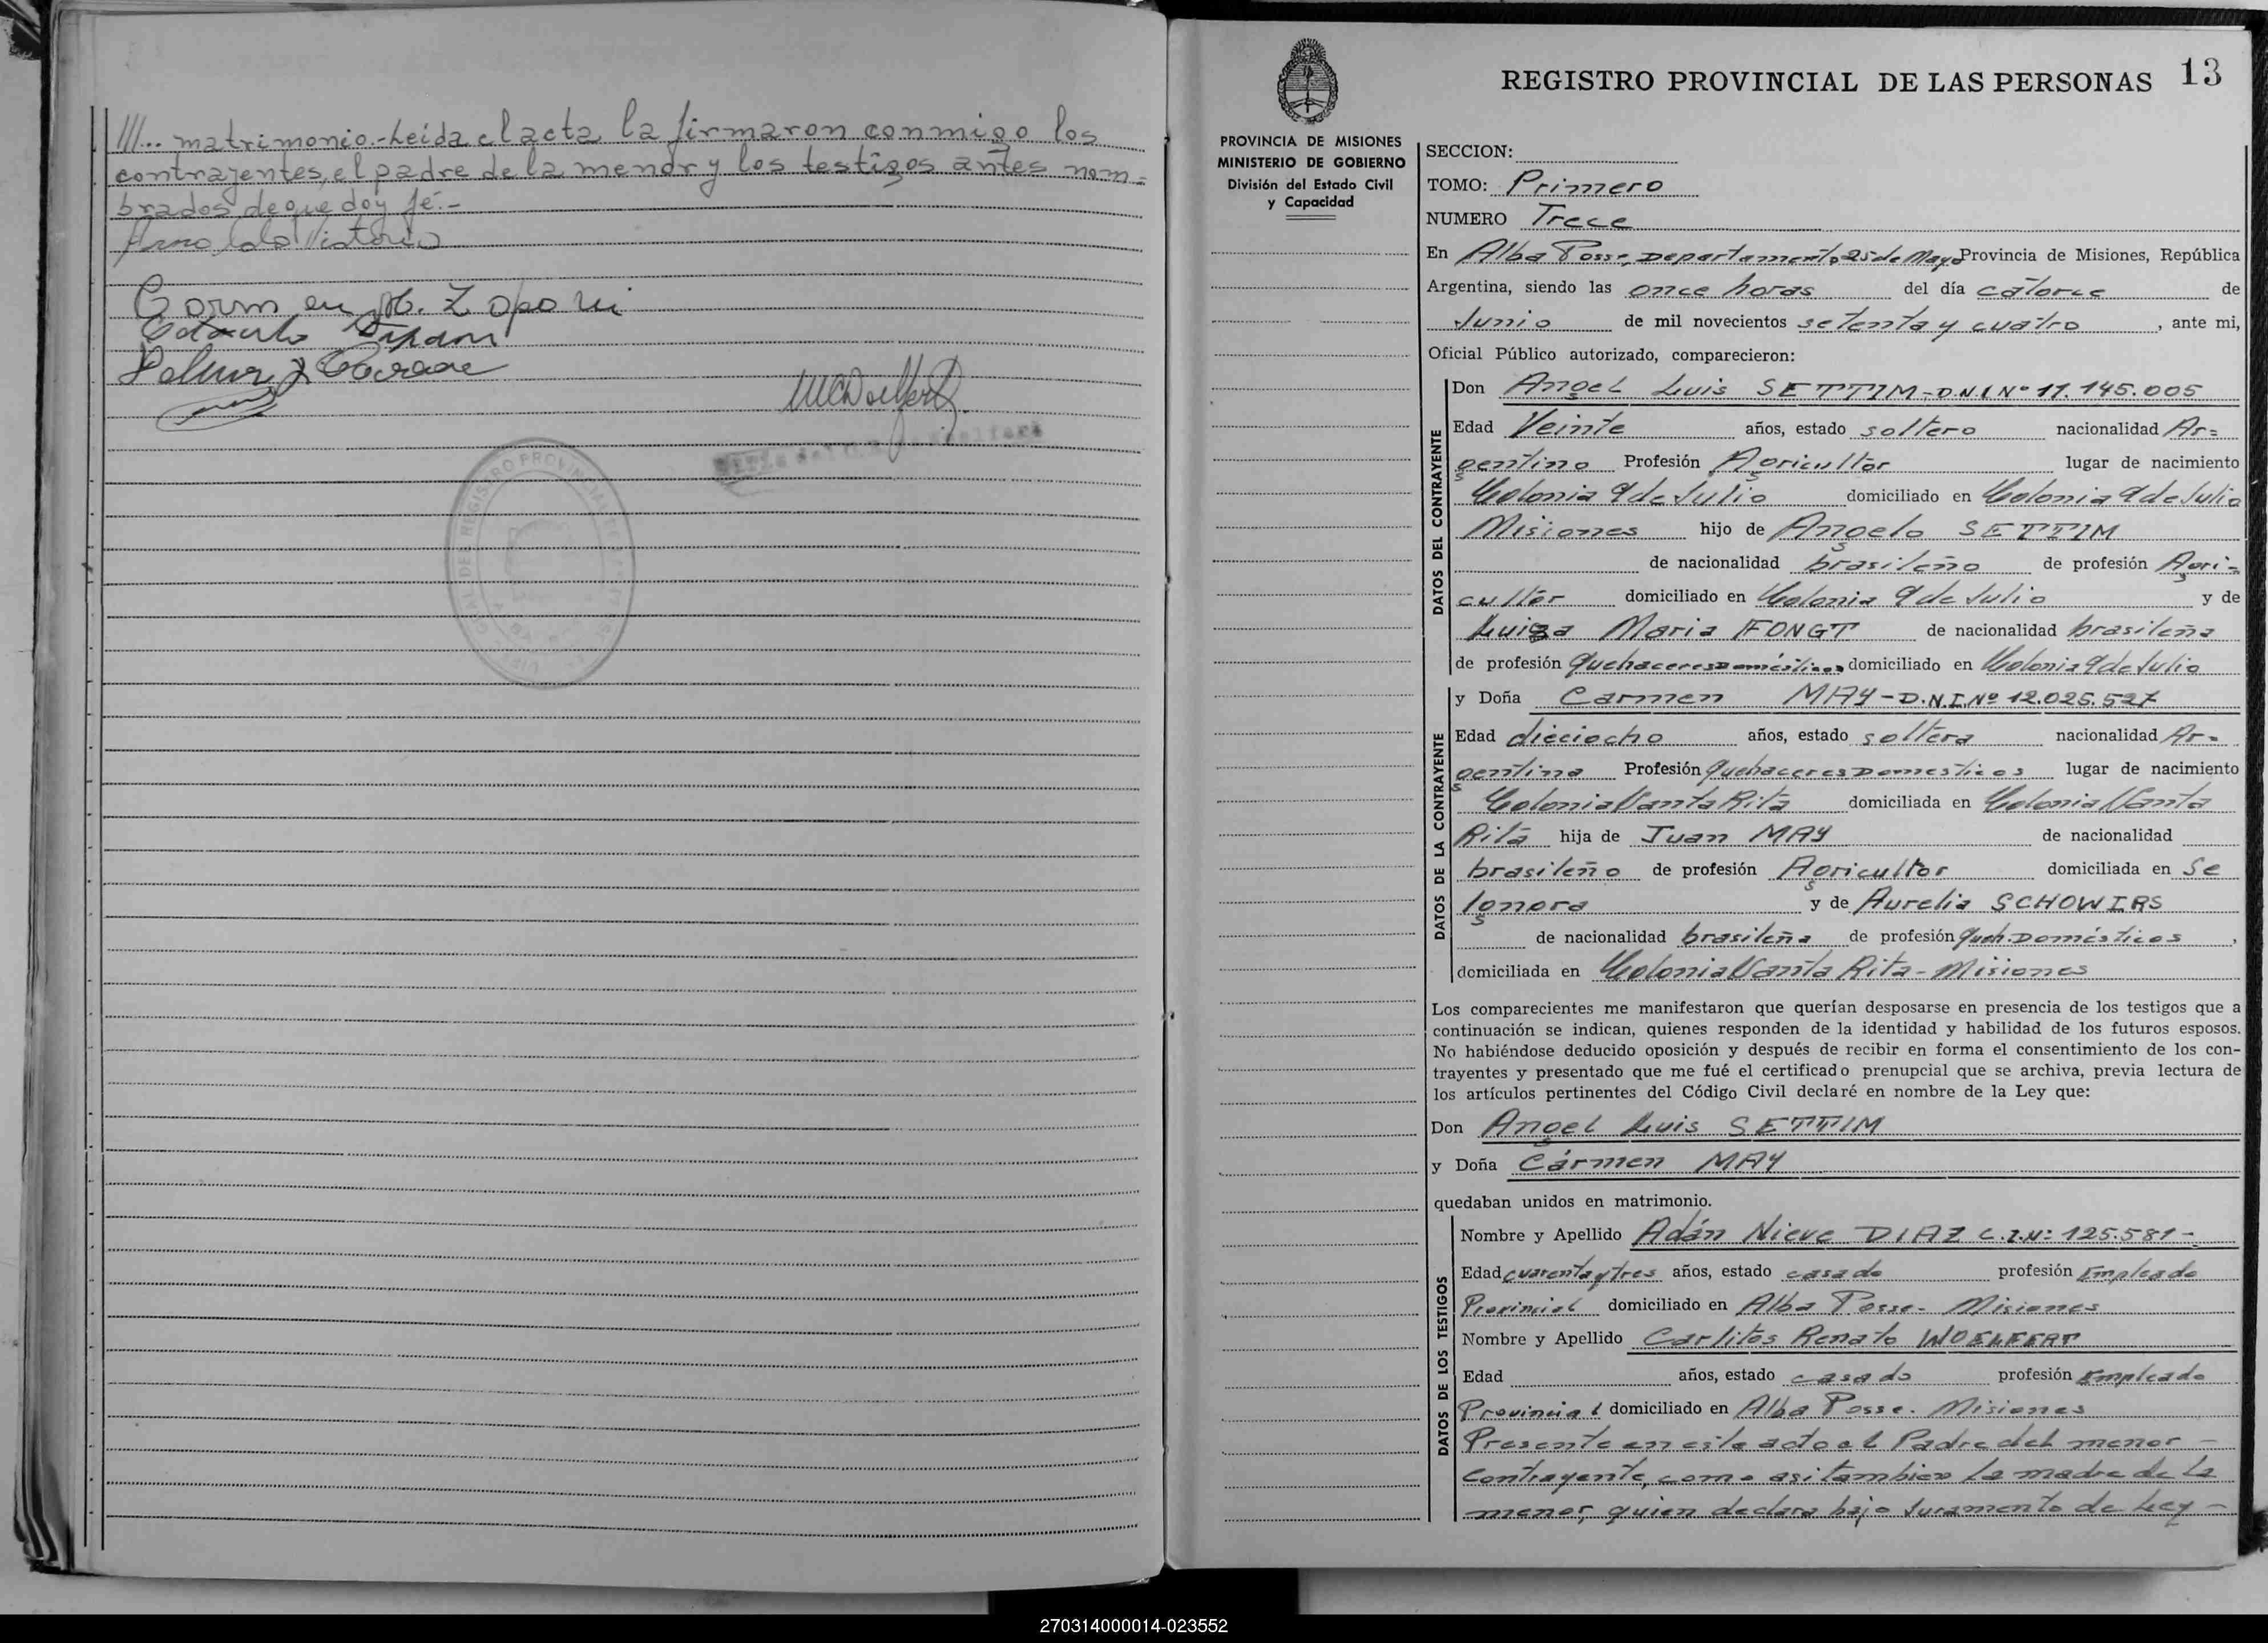 ///... matrimonio.-Leída el acta la firmaron conmigo los
contrayentes, el padre de la menor y los testigos antes nom=
brados, de que doy fé.-
REGISTRO PROVINCIAL DE LAS PERSONAS 13
PROVINCIA DE MISIONES
MINISTERIO DE GOBIERNO
División del Estado Civil
y Capacidad
SECCION:
TOMO: Primero
NUMERO Trece
En Alba Posse, Departamento 25 de Mayo Provincia de Misiones, República
Argentina, siendo las once horas del día catorce de
Junio de mil novecientos setenta y cuatro, ante mi,
Oficial Público autorizado, comparecieron:
DATOS DEL CONTRAYENTE
Don Angel Luis SETTIM-D.N.I.Nº 11.145.005
Edad Veinte años, estado soltero nacionalidad Ar=
gentino Profesión Agricultor lugar de nacimiento
Colonia 9 de Julio domiciliado en Colonia 9 de Julio
Misiones hijo de Angelo SETTIM
de nacionalidad brasileño de profesión Agri-
cultor domiciliado en Colonia 9 de Julio y de
Luisa Maria FONGT de nacionalidad brasileña
de profesión Quehaceres Domésticos domiciliado en Colonia 9 de Julio
DATOS DE LA CONTRAYENTE
y Doña Carmen MAY-D.N.I.Nº 12.025.527
Edad dieciocho años, estado soltera nacionalidad Ar=
gentina Profesión Quehaceres Domesticos lugar de nacimiento
Colonia Santa Rita domiciliada en Colonia Santa
Rita hija de Juan MAY de nacionalidad
brasileño de profesión Agricultor domiciliada en Se
Ignora y de Aurelia SCHOWIRS
de nacionalidad brasileña de profesión Queh. Domésticos,
domiciliada en Colonia Santa Rita-Misiones
Los comparecientes me manifestaron que querían desposarse en presencia de los testigos que a
continuación se indican, quienes responden de la identidad y habilidad de los futuros esposos.
No habiéndose deducido oposición y después de recibir en forma el consentimiento de los con-
trayentes y presentado que me fué el certificado prenupcial que se archiva, previa lectura de
los artículos pertinentes del Código Civil declaré en nombre de la Ley que:
Don Angel Luis SETTIM
y Doña Cármen MAY
quedaban unidos en matrimonio.
DATOS DE LOS TESTIGOS
Nombre y Apellido Adán Nieve DIAZ C.I.Nº: 125.581-
Edad cuarenta y tres años, estado casado profesión Empleado
Provincial domiciliado en Alba Posse- Misiones
Nombre y Apellido Carlitos Renato WOELFERT
Edad años, estado casado profesión Empleado
Provincial domiciliado en Alba Posse. Misiones
Presente en este acto el Padre del menor -
Contrayente, como asi tambien la madre de la
menor, quien declara bajo Juramento de Ley -
270314000014-023552